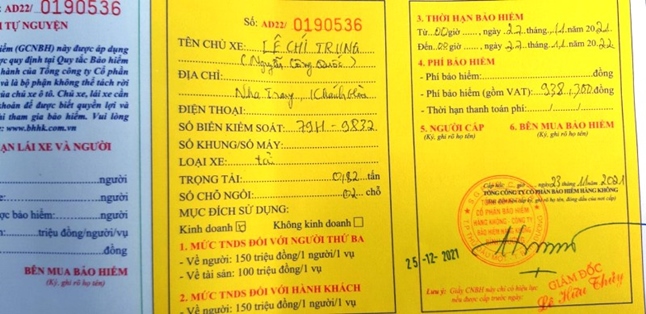 AD22/ 0190536
TỰ NGUYỆN
iểm (GCNBH) này được áp dụng
ợc quy định tại Quy tắc Bảo hiểm
hành của Tổng công ty Cổ phần
và là bộ phận không thể tách rời
của chủ xe ô tô. Chủ xe, lái xe cần
khoản để được biết quyền lợi và
i tham gia bảo hiểm. Vui lòng
www.bhhk.com.vn
ẠN LÁI XE VÀ NGƯỜI
người
ợc bảo hiểm: người
triệu đồng/người/vụ
đồng
BÊN MUA BẢO HIỂM
(Ký, ghi rõ họ tên)
Số: AD22/ 0190536
TÊN CHỦ XE: LÊ CHÍ TRUNG
(Nguyễn Công Quốc)
ĐỊA CHỈ:
Nha Trang, Khánh Hòa
ĐIỆN THOẠI:
SỐ BIỂN KIỂM SOÁT: 79H - 9832
SỐ KHUNG/SỐ MÁY:
LOẠI XE: tải
TRỌNG TẢI: 0,82 tấn
SỐ CHỖ NGỒI: 02 chỗ
MỤC ĐÍCH SỬ DỤNG:
Kinh doanh Không kinh doanh
1. MỨC TNDS ĐỐI VỚI NGƯỜI THỨ BA
- Về người: 150 triệu đồng/1 người/1 vụ
- Về tài sản: 100 triệu đồng/1 vụ
2. MỨC TNDS ĐỐI VỚI HÀNH KHÁCH
Về người: 150 triệu đồng/1 người/1 vụ
3. THỜI HẠN BẢO HIỂM
Từ 00 giờ, 27.11.2021
Đến 00 giờ, 27.11.2022
4. PHÍ BẢO HIỂM
- Phí bảo hiểm: đồng
- Phí bảo hiểm (gồm VAT): 938,700 đồng
- Thời hạn thanh toán phí:
5. NGƯỜI CẤP 6. BÊN MUA BẢO HIỂM
(Ký, ghi rõ họ tên)
Cấp hồi giờ, ngày 23.11.2021
TỔNG CÔNG TY CỔ PHẦN BẢO HIỂM HÀNG KHÔNG
CỔ PHẦN BẢO HIỂM
HÀNG KHÔNG - CÔNG TY
25 -12- 2021
GIÁM ĐỐC
Lê Hữu Thủy
Lưu ý: Giấy CNBH này chỉ có hiệu lực
nếu được cấp trước ngày: